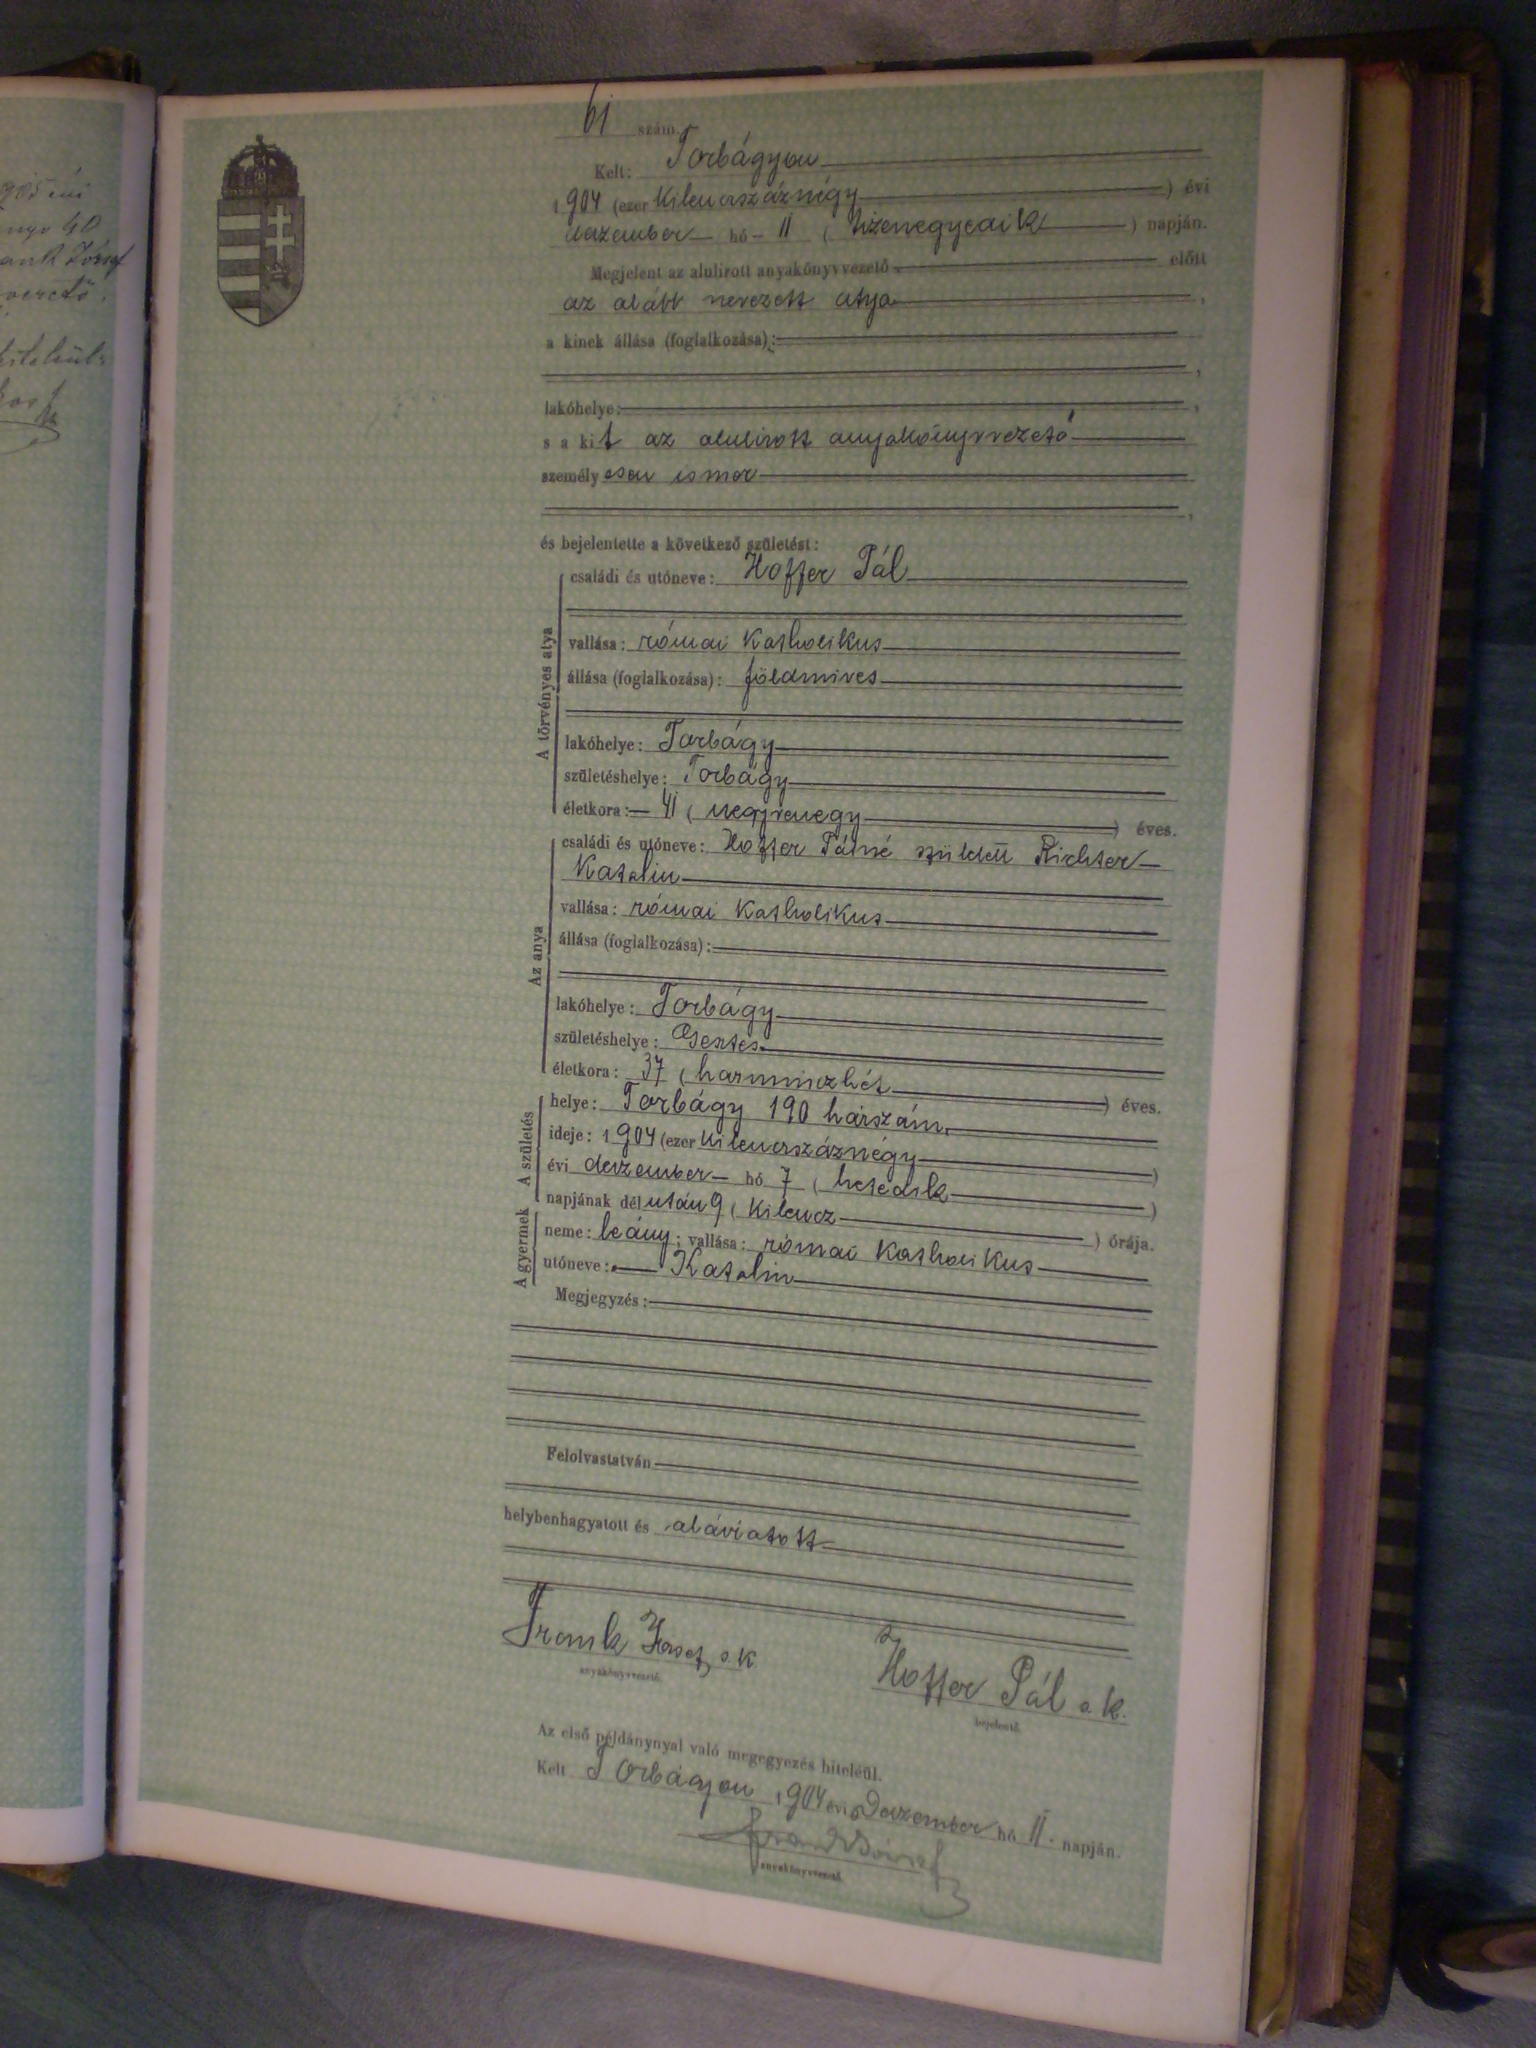 1905 évi
40
Frank József
vezető.
61 szám.
Kelt: Torbágyon
1904 (ezer kilenczszáznégy) évi
deczember hó 11 (tizenegyedik) napján.
Megjelent az alulirott anyakönyvvezető előtt
az alább nevezett atya,
a kinek állása (foglalkozása):
,
lakóhelye: ,
s a kit az alulirott anyakönyvvezető
személyesen ismer
,
és bejelentette a következő születést:
A törvényes atya
családi és utóneve: Hoffer Pál
vallása: római katholikus
állása (foglalkozása): földmives
lakóhelye: Torbágy
születéshelye: Torbágy
életkora: 41 (negyvenegy) éves.
Az anya
családi és utóneve: Hoffer Pálné született Richter
Katalin
vallása: római katholikus
állása (foglalkozása):
lakóhelye: Torbágy
születéshelye: Gesztes
életkora: 37 (harminczhét) éves.
A születés
helye: Torbágy 190 házszám.
ideje: 1904 (ezer kilenczszáznégy)
évi deczember hó 7 (hetedik)
napjának délután 9 (kilencz) órája.
A gyermek
neme: leány; vallása: római katholikus
utóneve: Katalin
Megjegyzés:
Felolvastatván
helybenhagyatott és aláíratott
Frank József s. k.
anyakönyvvezető.
Hoffer Pál s. k.
bejelentő.
Az első példánynyal való megegyezés hiteléül.
Kelt Torbágyon 1904 évi Deczember hó 11. napján.
Frank József
anyakönyvvezető.